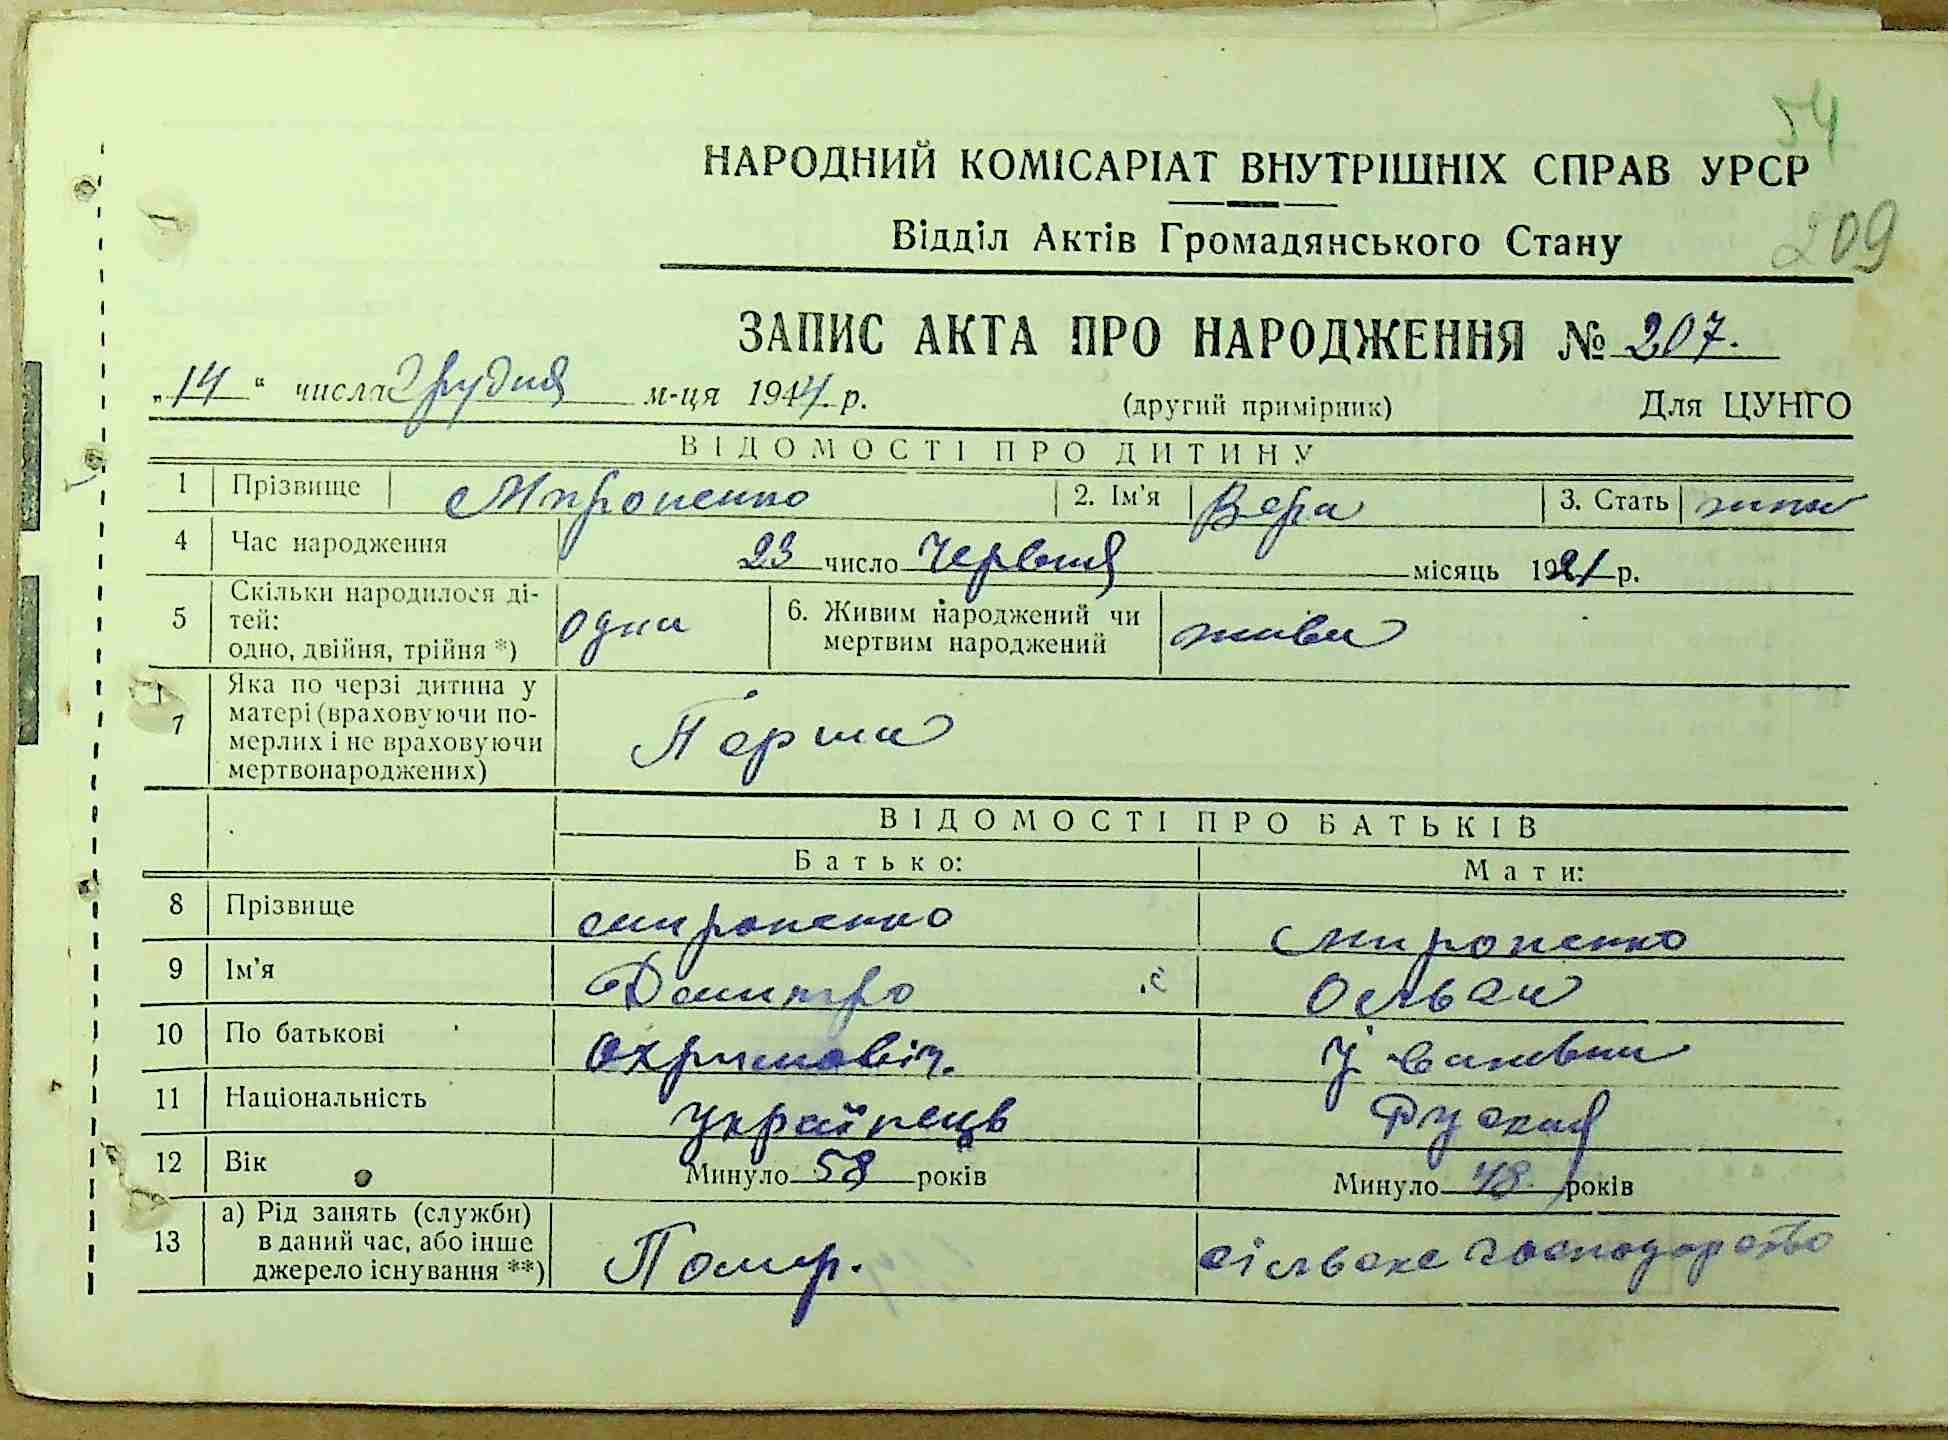 54
НАРОДНИЙ КОМІСАРІАТ ВНУТРІШНІХ СПРАВ УРСР
Відділ Актів Громадянського Стану
209
ЗАПИС АКТА ПРО НАРОДЖЕННЯ № 207.
„14“ числа Грудня м-ця 1944 р. (другий примірник) Для ЦУНГО
ВІДОМОСТІ ПРО ДИТИНУ
1 Прізвище Мироненко 2. Ім'я Вера 3. Стать жіноч
4 Час народження 23 число Червня місяць 1921 р.
5 Скільки народилося ді-
тей:
одно, двійня, трійня *) одна 6. Живим народжений чи
мертвим народжений жива
7 Яка по черзі дитина у
матері (враховуючи по-
мерлих і не враховуючи
мертвонароджених) Перша
ВІДОМОСТІ ПРО БАТЬКІВ
Батько: Мати:
8 Прізвище Мироненко Мироненко
9 Ім'я Дмитро
10 По батькові Охримовіч. Івановна
11 Національність Українець Руская
12 Вік Минуло 58 років Минуло 48 років
13 а) Рід занять (служби)
в даний час, або інше
джерело існування **) Помер. сільске господарство